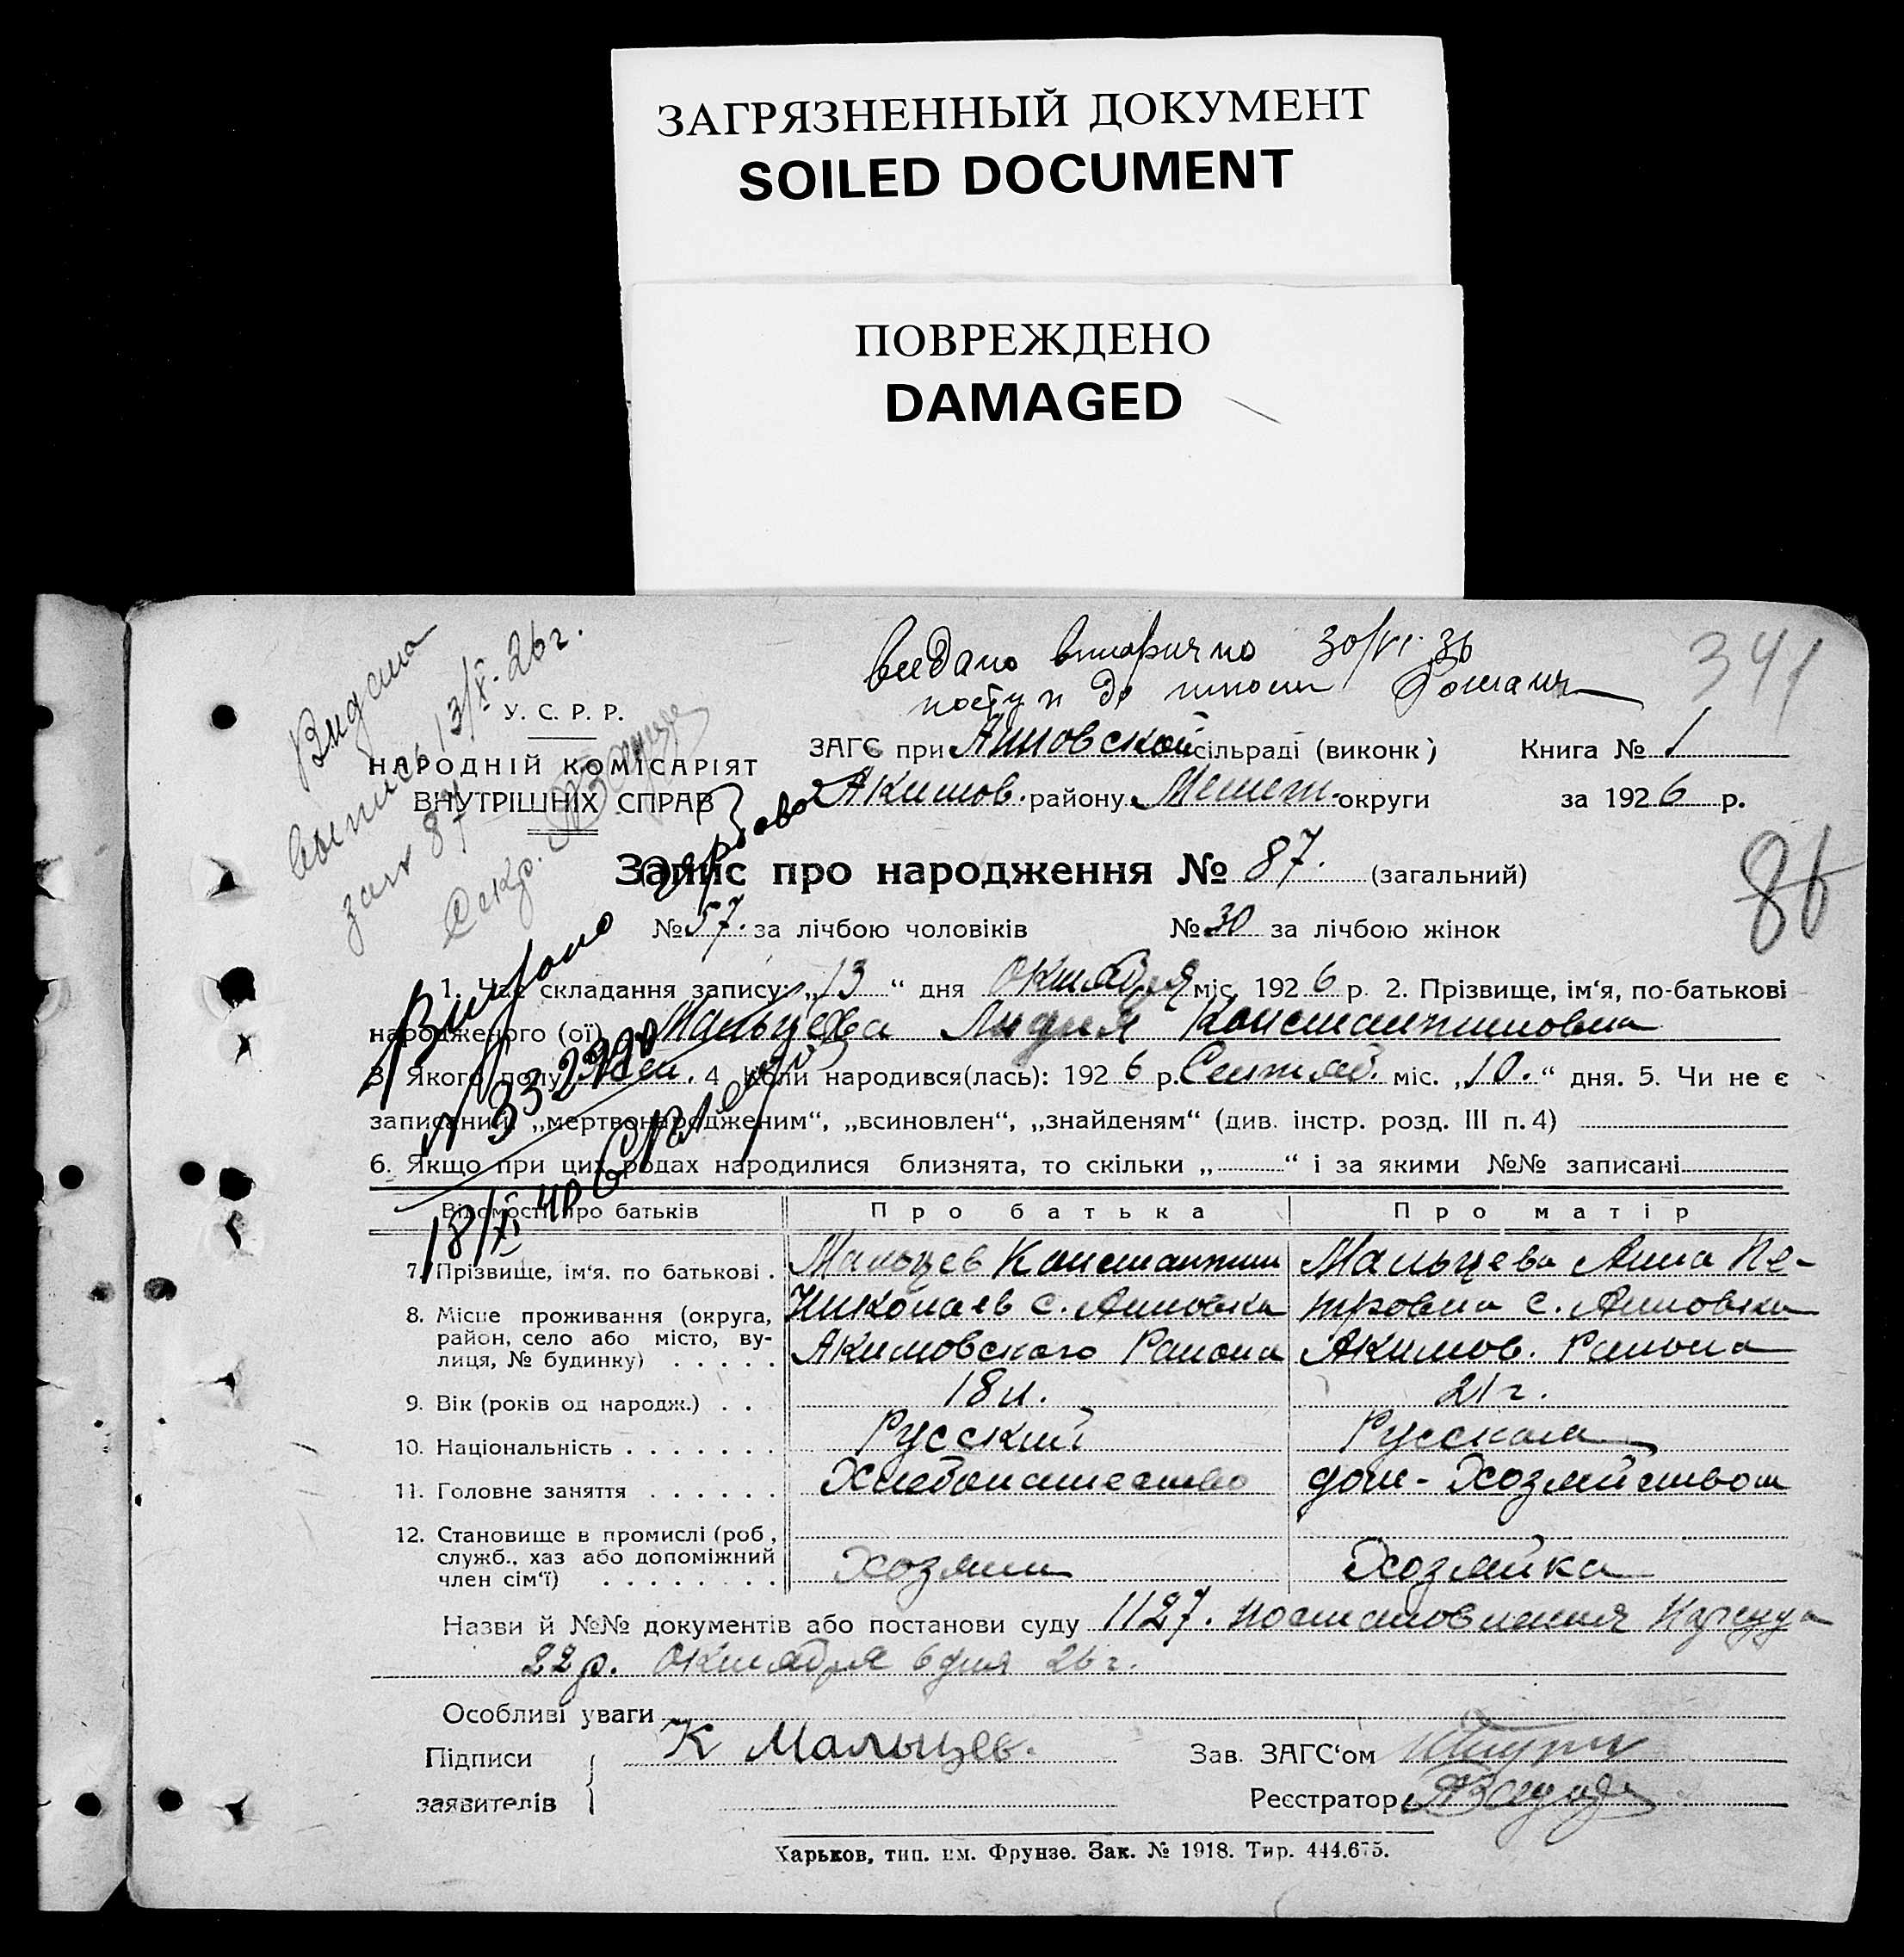 ЗАГРЯЗНЕННЫЙ ДОКУМЕНТ
SOILED DOCUMENT
ПОВРЕЖДЕНО
DAMAGED
Видана
выпись 13/X-26 г.
зап 87
Секр.
видано вторично 30/VI-36
поступ до школи
341
У. С. Р. Р.
НАРОДНІЙ КОМІСАРІЯТ
ВНУТРІШНІХ СПРАВ
ЗАГС при Анновской сільраді (виконк.) Книга № 1
Акимов. району Мелит. округи за 1926 р.
86
Запис про народження № 87. (загальний)
№ 57. за лічбою чоловіків № 30 за лічбою жінок
1. Час складання запису: „13“ дня Октября міс. 1926 р. 2. Прізвище, ім‘я, по-батькові
народженого (ої) Мальцева Лидия Константиновна
3. Якого полу Жен. 4 Коли народився(лась): 1926 р. Сентяб. міс. „10.“ дня. 5. Чи не є
записаний „мертвонародженим“, „всиновлен“, „знайденям“ (див. інстр. розд. III п. 4)
6. Якщо при цих родах народилися близнята, то скільки „ “ і за якими №№ записані
18/XI 40
Відомості про батьків Про батька Про матір
7. Прізвище, ім‘я. по батькові . Мальцев Константин Мальцева Анна Пе-
8. Місце проживання (округа, Николаев с. Анновка тровна с. Анновка
район, село або місто, ву-
лиця, № будинку) . . . . . Акимовского Района Акимов. Района
9. Вік (років од народж.) . . . 18 л. 21 г.
10. Національність . . . . . . . Русский Русская
11. Головне заняття . . . . . . Хлебопашество дом-Хозяйством
12. Становище в промислі (роб.,
служб., хаз або допоміжний
член сім‘ї) . . . . . . . . Хозяин Хозяйка
Назви й №№ документів або постанови суду 1127. постановления Нарсуда
22 р. Октября 6 дня 26 г.
Особливі уваги
Підписи К Мальцев. Зав. ЗАГС‘ом
заявителів Реєстратор
Харьков, тип. им. Фрунзе. Зак. № 1918. Тир. 444.675.